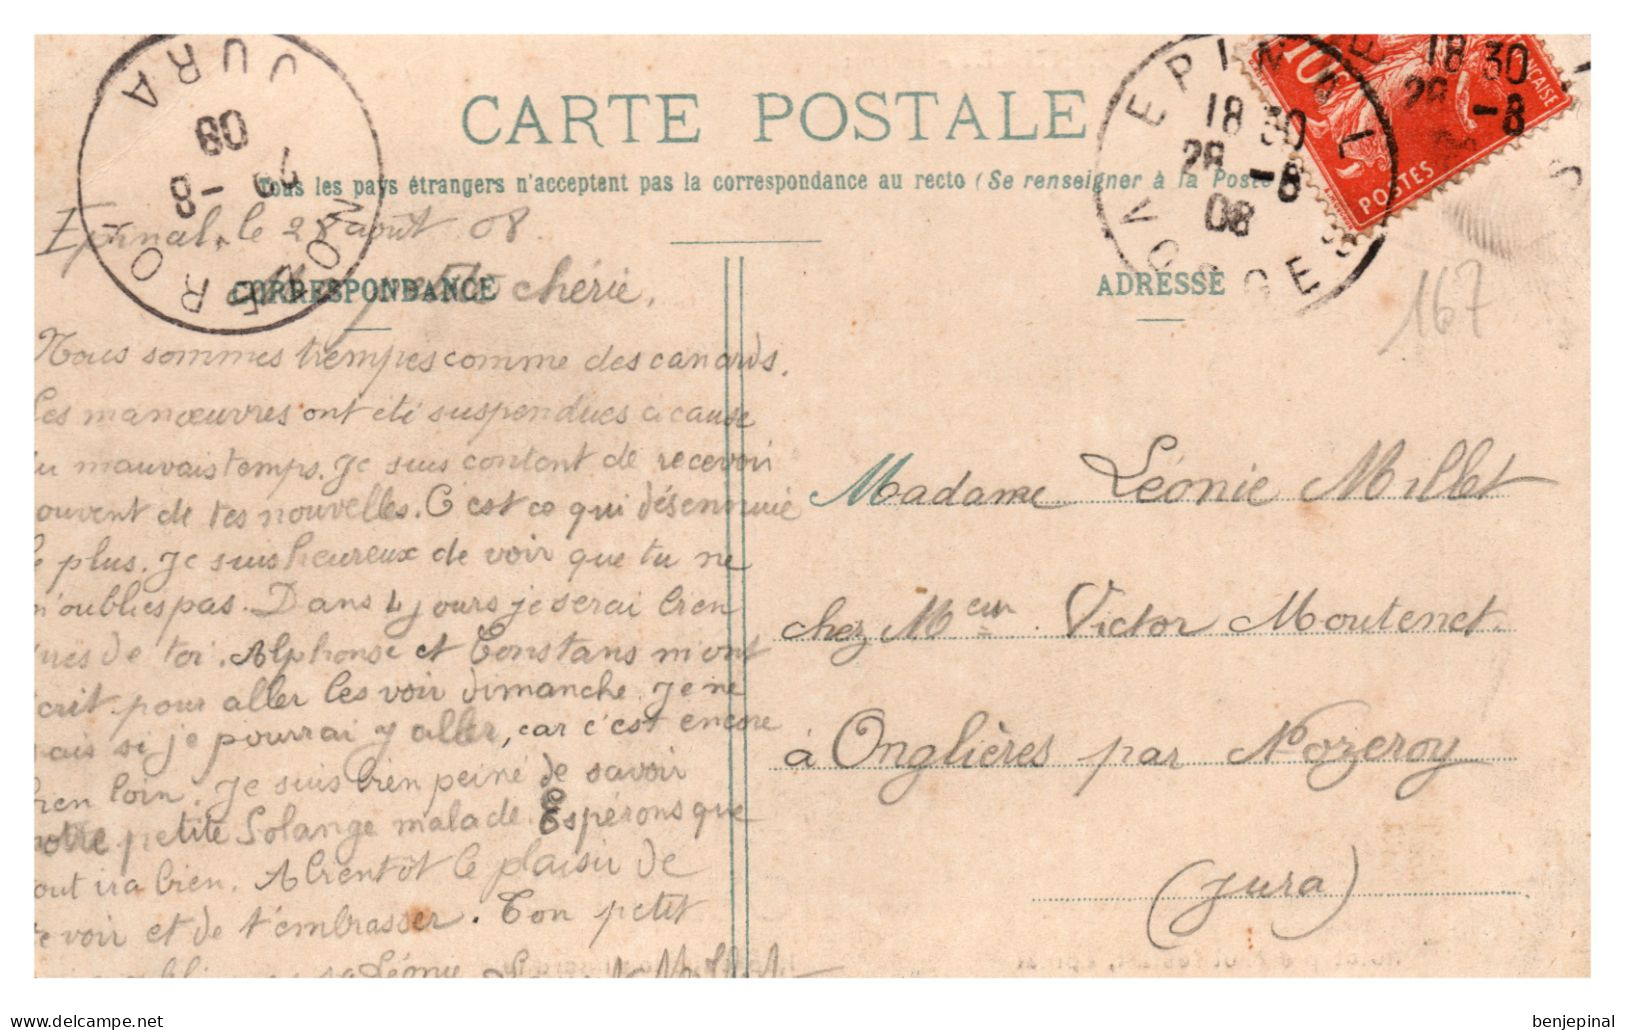 CARTE POSTALE
Tous les pays étrangers n'acceptent pas la correspondance au recto (Se renseigner à la Poste
CORRESPONDANCE
ADRESSE
NOZEROY
JURA
29 -8
08
EPINAL
VOSGES
18 30
28 -8
08
18 30
28 -8
10c
POSTES
FRANÇAISE
167
Epinal, le 28 août 08.
chérie,
Nous sommes trempes comme des canards.
Les manœuvres ont été suspendues a cause
du mauvais temps. Je suis content de recevoir
souvent de tes nouvelles. C'est ce qui désennuie
le plus. Je suis heureux de voir que tu ne
m'oublies pas. Dans 4 jours je serai bien
près de toi. Alphonse et Constans m'ont
écrit pour aller les voir dimanche. Je ne
sais si je pourrai y aller, car c'est encore
bien loin. Je suis bien peiné de savoir
notre petite Solange malade. Espérons que
tout ira bien. A bientôt le plaisir de
te voir et de t'embrasser. Ton petit
sa Léonie
Madame Léonie Millet
chez Meur Victor Moutenet
à Onglières par Nozeroy
(Jura)
delcampe.net
benjepinal